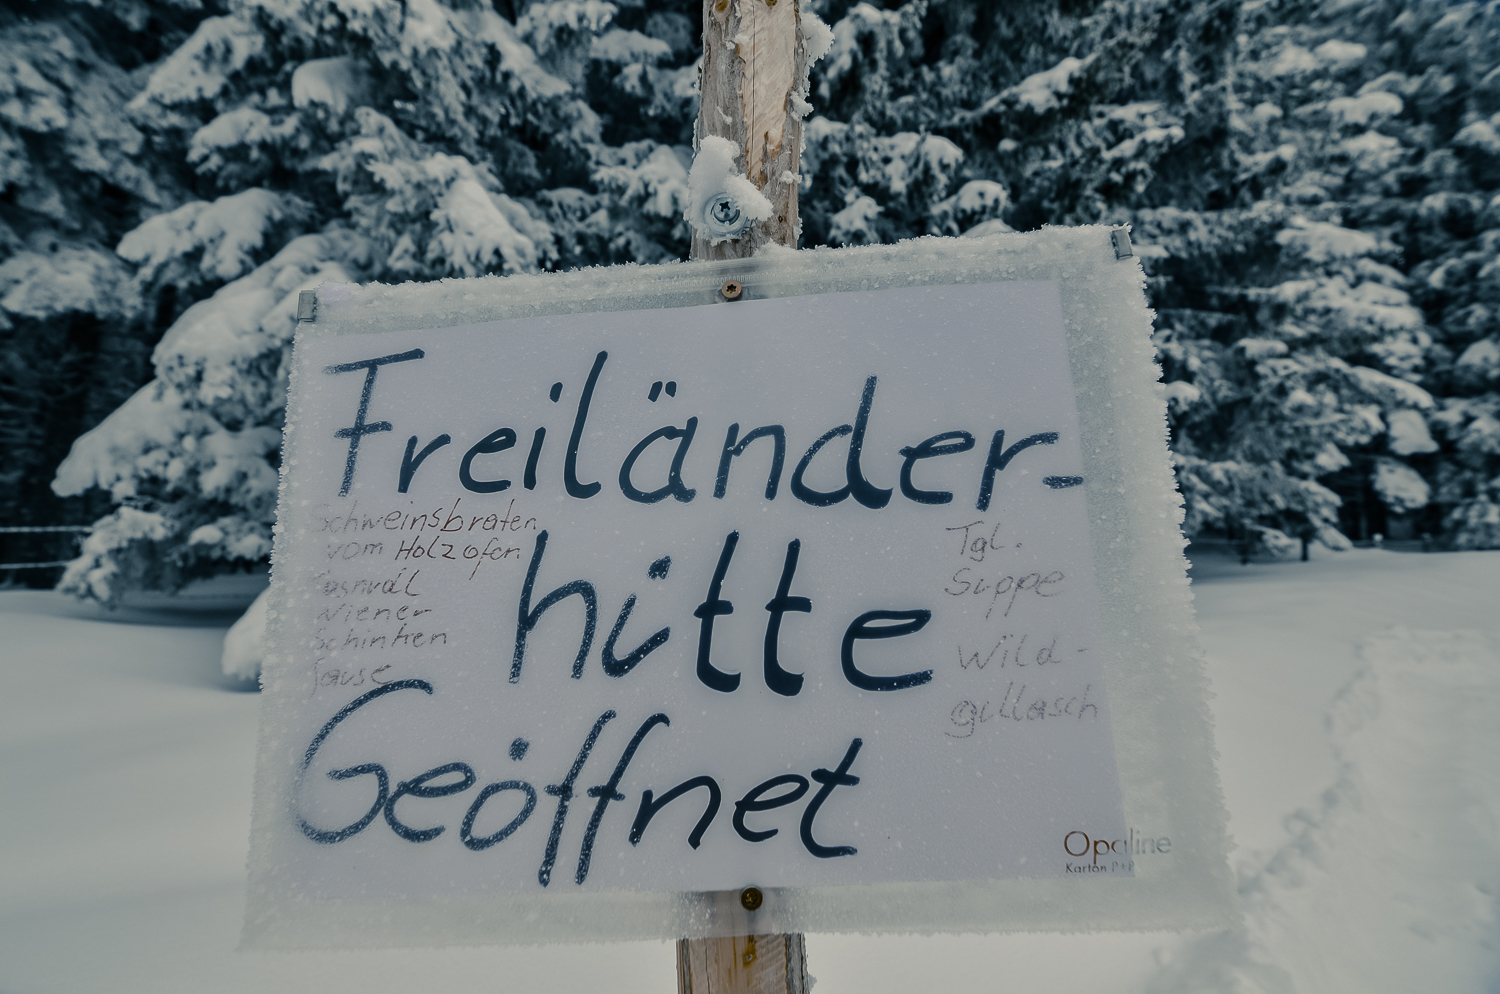 Freiländer-
hütte
Geöffnet
Schweinsbraten
vom Holzofen
Wiener
Schinken
Jause
Tgl.
Suppe
Wild-
gullasch
Opaline
Karton